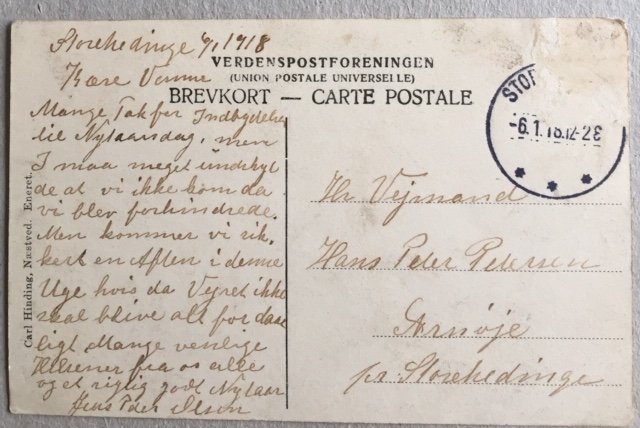 Storehedinge 6/1 1918
VERDENSPOSTFORENINGEN
(UNION POSTALE UNIVERSELLE)
BREVKORT — CARTE POSTALE
Kære Venne
Mange Tak for Indbydelse
til Nytaarsdag, men
I maa meget undskyl
de at vi ikke kom da
vi blev forhindrede.
Men kommer vi sik
kert en Aften i denne
Uge hvis da Vejret ikke
skal blive alt for daar
ligt Mange venlige
Hilsener fra os alle
og et rigtig godt Nytaar
Jens Peder Olsen
STOR
-6.1.18.12-2E
Hr Vejmand
Hans Peter Petersen
Arnøje
pr. Storehedinge
Carl Hinding, Næstved. Eneret.